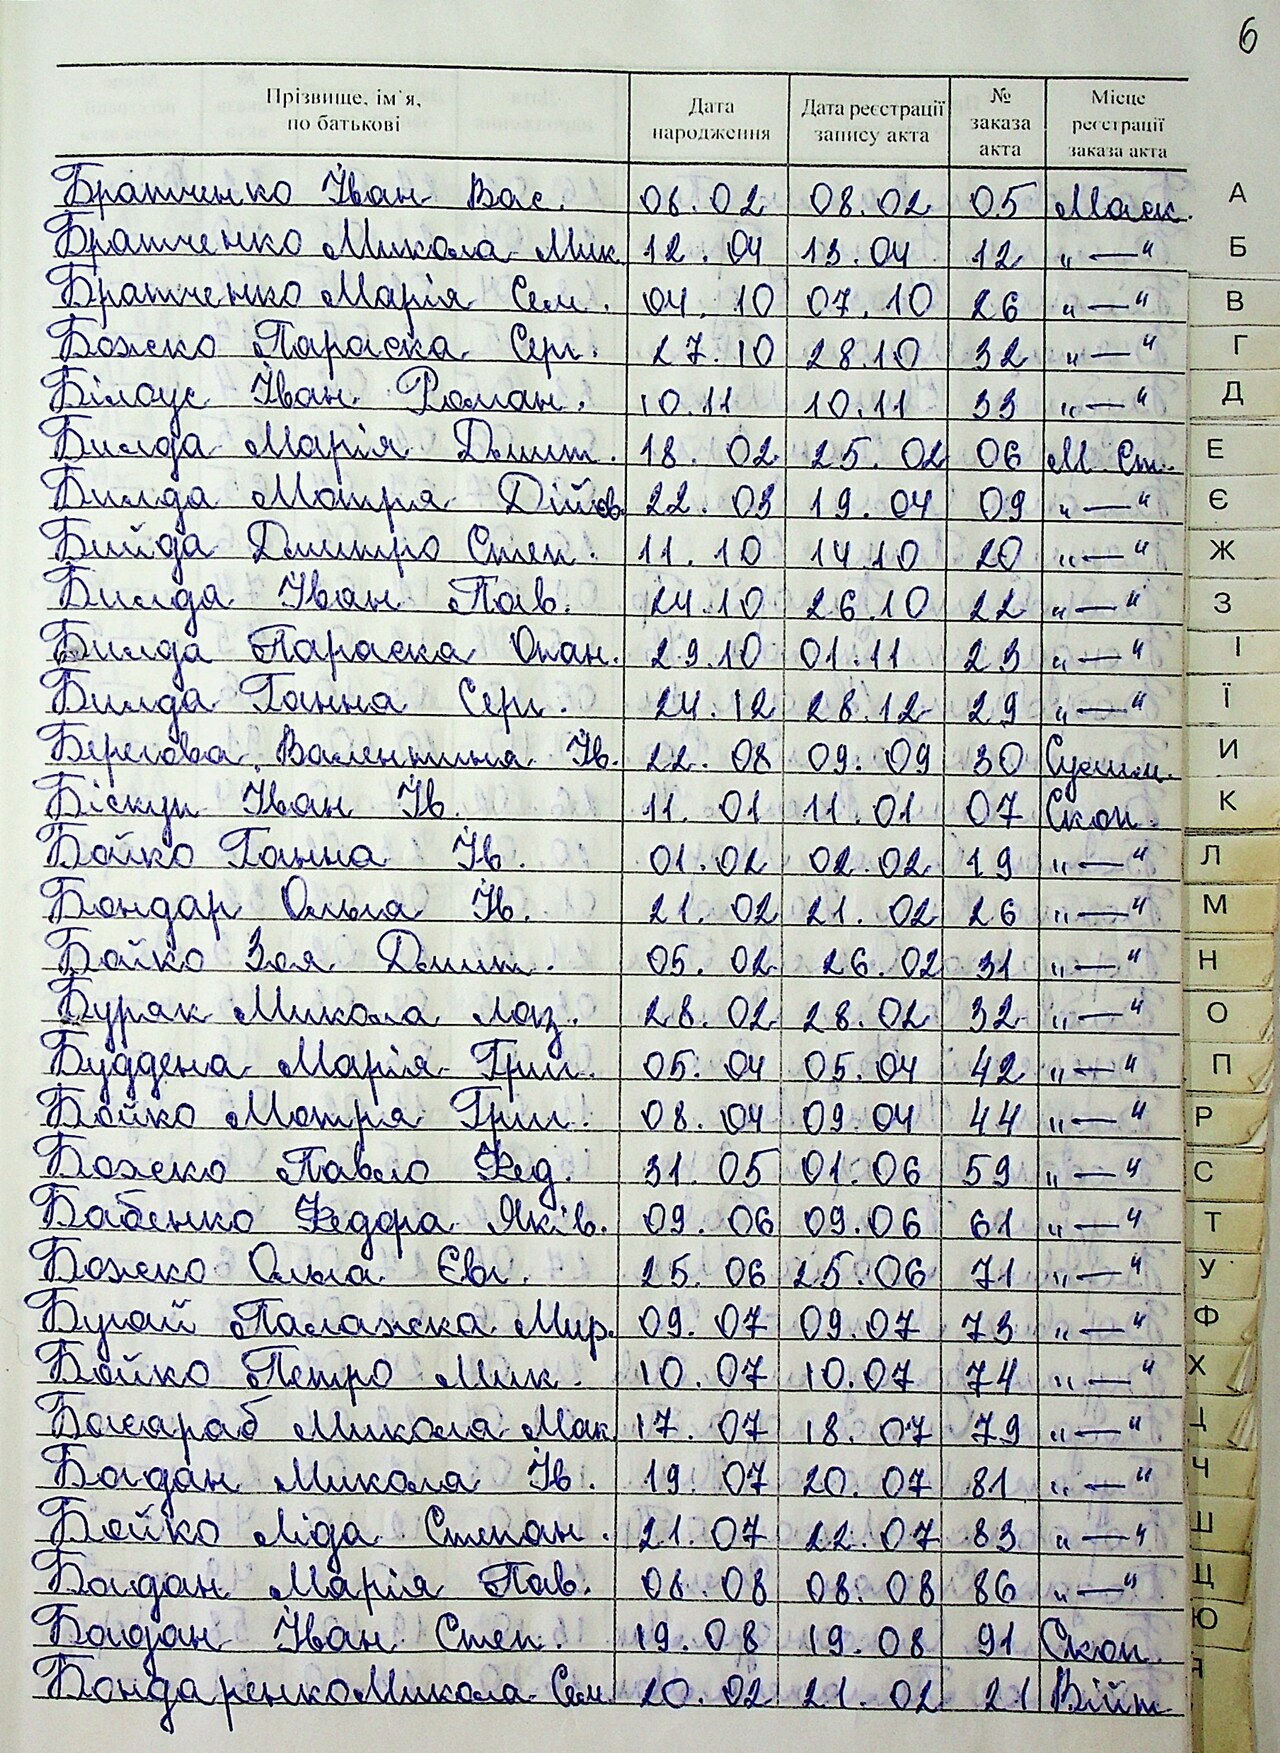 6
Прізвище, ім'я, по батькові Дата народження Дата реєстрації запису акта № заказа акта Місце реєстрації заказа акта
Братченко Іван Вас. 06.02 08.02 05 Моск. А
Братченко Микола Мик. 12.04 13.04 12 „—“ Б
Братченко Марія Сем. 04.10 07.10 26 „—“ В
Божко Параска Серг. 27.10 28.10 32 „—“ Г
Білоус Іван Роман. 10.11 10.11 33 „—“ Д
Билда Марія Дмит. 18.02 25.02 06 М. Ст. Е
Билда Мотря 22.03 19.04 09 „—“ Є
Бийда Дмитро Степ. 11.10 14.10 20 „—“ Ж
Билда Іван Пав. 24.10 26.10 22 „—“ З
Билда Параска Опан. 29.10 01.11 23 „—“ І
Билда Ганна Серг. 24.12 28.12 29 „—“ Ї
Берегова Валентина Ів. 22.08 09.09 30 И
Біскуп Іван Ів. 11.01 11.01 07 Скоп. К
Бойко Ганна Ів. 01.02 02.02 19 „—“ Л
Бондар Ольга Ів. 21.02 21.02 26 „—“ М
Бойко Зоя Дмит. 05.02 26.02 31 „—“ Н
Буряк Микола Лаз. 28.02 28.02 32 „—“ О
Буддена Марія Григ. 05.04 05.04 42 „—“ П
Бойко Мотря Григ. 08.04 09.04 44 „—“ Р
Божко Павло Фед. 31.05 01.06 59 „—“ С
Бабенко Федора Яків. 09.06 09.06 61 „—“ Т
Божко Ольга Євг. 25.06 25.06 71 „—“ У
Бугай Палажка Мир. 09.07 09.07 73 „—“ Ф
Бойко Петро Мик. 10.07 10.07 74 „—“ Х
Басараб Микола Мак. 17.07 18.07 79 „—“ Ц
Богдан Микола Ів. 19.07 20.07 81 „—“ Ч
Бойко Ліда Степан. 21.07 22.07 83 „—“ Ш
Богдан Марія Пав. 08.08 08.08 86 „—“ Щ
Богдан Іван Степ. 19.08 19.08 91 Скоп. Ю
Бондаренко Микола Сем. 20.02 21.02 21 Війт. Я